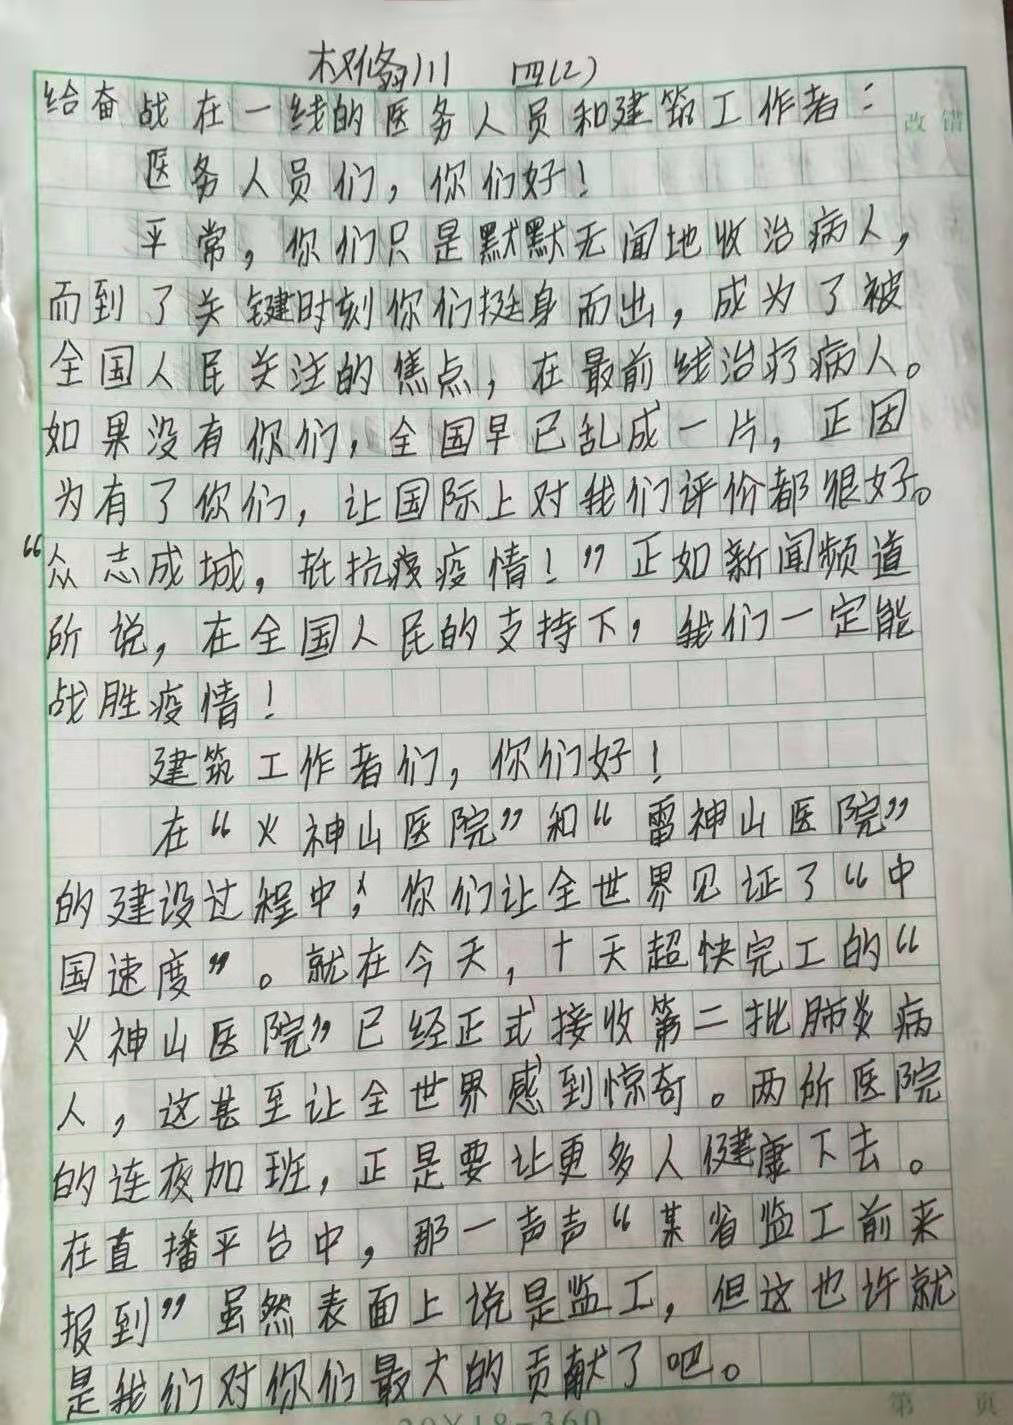 权修川 四(2)
给奋战在一线的医务人员和建筑工作者：
改错
医务人员们，你们好！
平常，你们只是默默无闻地收治病人，
而到了关键时刻你们挺身而出，成为了被
全国人民关注的焦点，在最前线治疗病人。
如果没有你们，全国早已乱成一片，正因
为有了你们，让国际上对我们评价都很好。
“众志成城，抗疫情！”正如新闻频道
所说，在全国人民的支持下，我们一定能
战胜疫情！
建筑工作者们，你们好！
在“火神山医院”和“雷神山医院”
的建设过程中，你们让全世界见证了“中
国速度”。就在今天，十天超快完工的“
火神山医院”已经正式接收第二批肺炎病
人，这甚至让全世界感到惊奇。两所医院
的连夜加班，正是要让更多人健康下去。
在直播平台中，那一声声“某省监工前来
报到”虽然表面上说是监工，但这也许就
是我们对你们最大的贡献了吧。
20×18=360
第 页